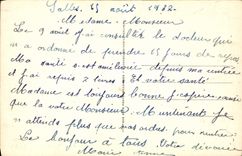 Salles, 15 août 1932.
Madame, Monsieur
Le 9 août j'ai consulté le docteur qui
m'a ordonné de prendre 15 jours de repos
Ma santé s'est améliorée depuis ma rentrée
et j'ai repris 2 kilos. Et votre santé
Madame est toujours bonne j'espère, ainsi
que la votre Monsieur. Maintenant je
n'attends plus que vos ordres pour rentrer.
Le bonjour à tous. Votre dévouée
Marie